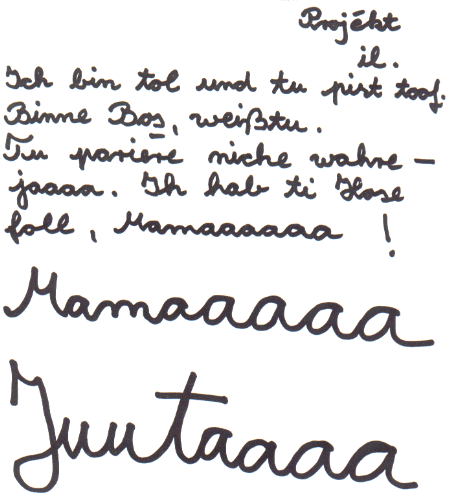 Projékt
il.
Ich bin tol und tu pist toof.
Binne Bos, weißtu.
Tu pariere niche wahre –
jaaaa. Ih hab ti Hose
foll, Mamaaaaaa !
Mamaaaaaa
Juutaaaa